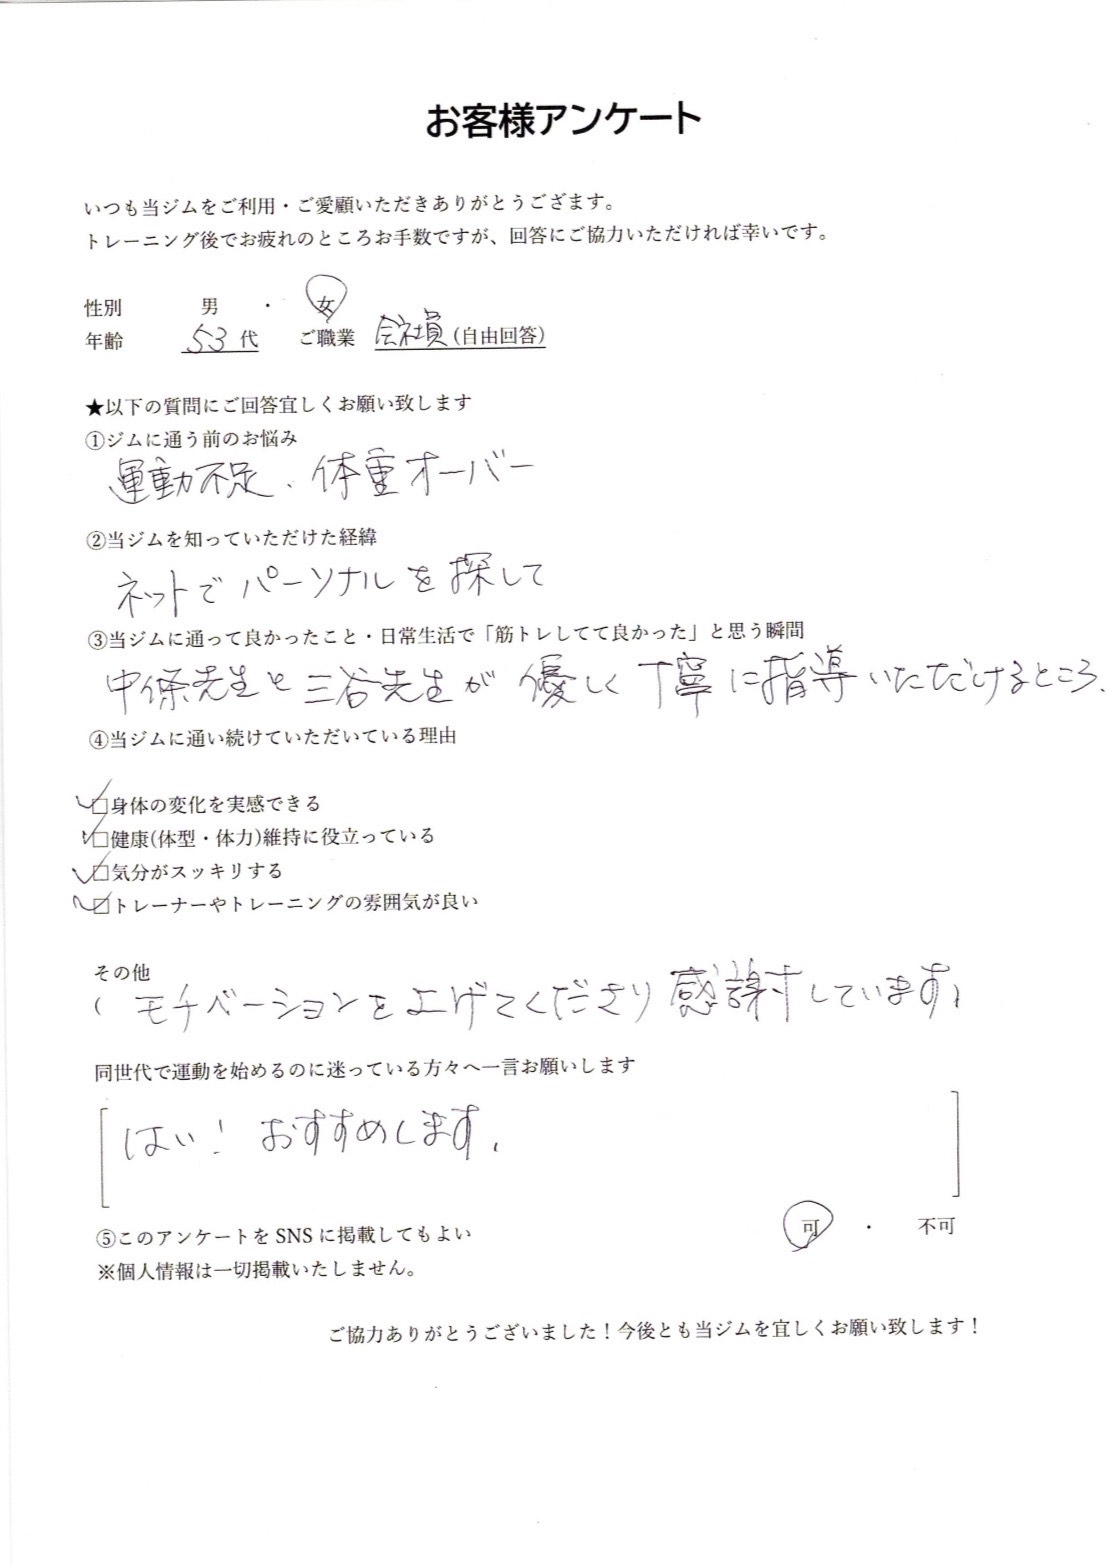 お客様アンケート
いつも当ジムをご利用・ご愛顧いただきありがとうござます。
トレーニング後でお疲れのところお手数ですが、回答にご協力いただければ幸いです。
性別 男 ・ 女
年齢 53代 ご職業 会社員(自由回答)
★以下の質問にご回答宜しくお願い致します
①ジムに通う前のお悩み
運動不足、体重オーバー
②当ジムを知っていただけた経緯
ネットでパーソナルを探して
③当ジムに通って良かったこと・日常生活で「筋トレしてて良かった」と思う瞬間
中條先生と三谷先生が優しく丁寧に指導いただけるところ。
④当ジムに通い続けていただいている理由
☑身体の変化を実感できる
☑健康(体型・体力)維持に役立っている
☑気分がスッキリする
☑トレーナーやトレーニングの雰囲気が良い
その他
(モチベーションを上げてくださり感謝しています)
同世代で運動を始めるのに迷っている方々へ一言お願いします
[はい！おすすめします。]
⑤このアンケートをSNSに掲載してもよい 可 ・ 不可
※個人情報は一切掲載いたしません。
ご協力ありがとうございました！今後とも当ジムを宜しくお願い致します！